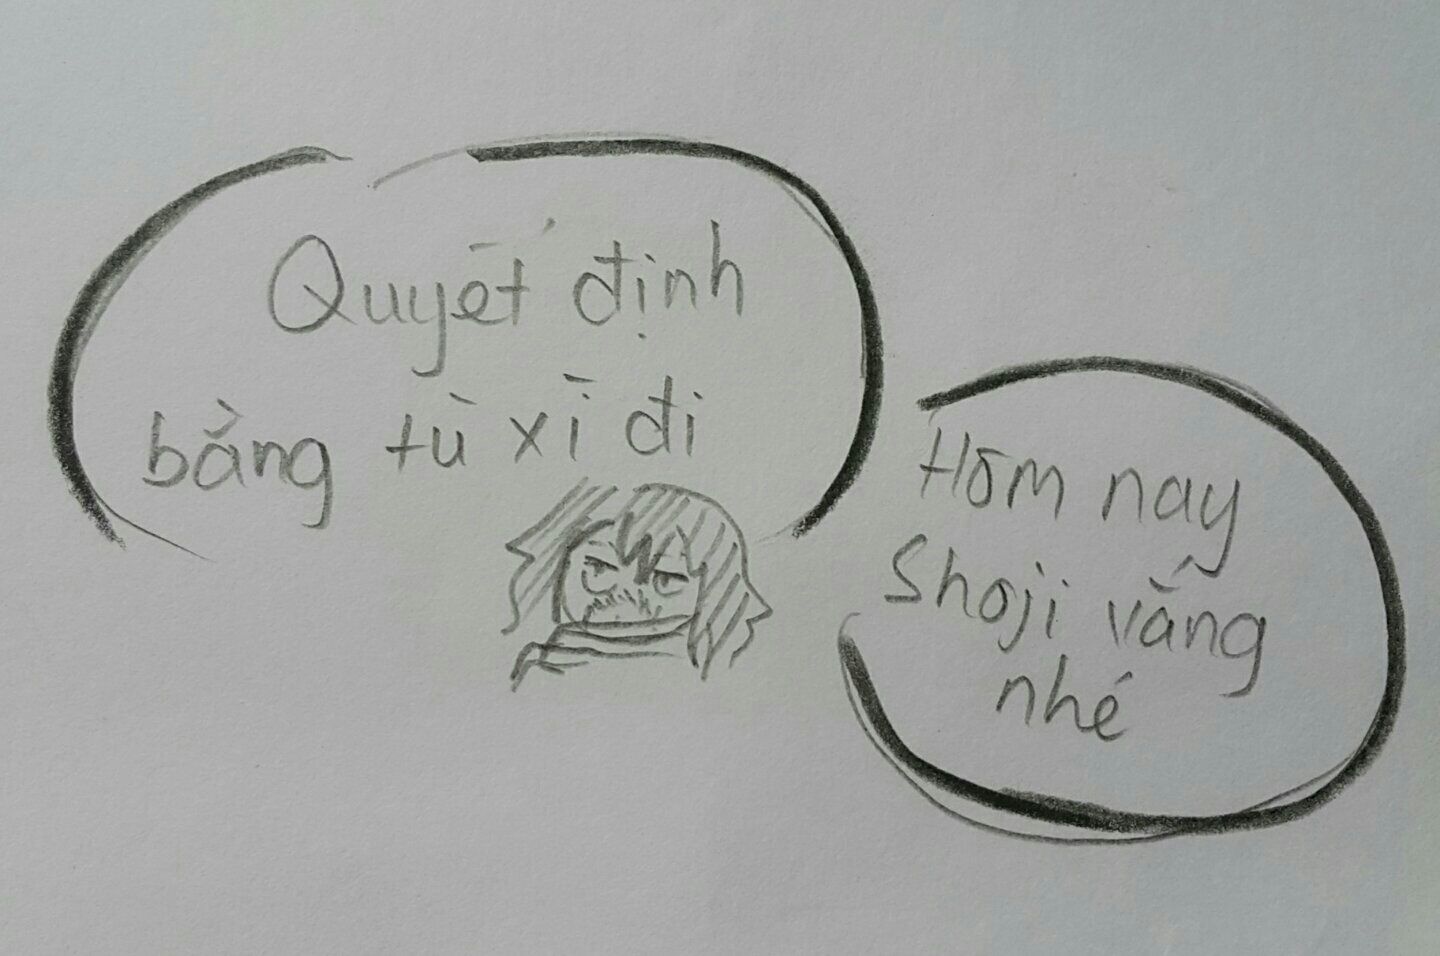 Quyết định
bằng tù xì đi
Hôm nay
Shoji vắng
nhé